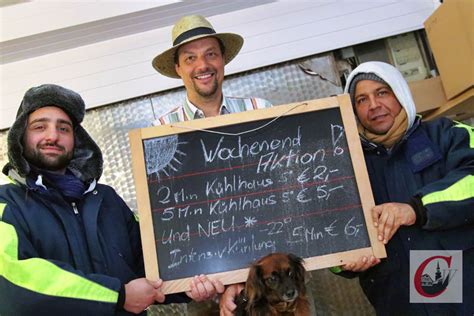 Wochenend
Aktion
2 Min Kühlhaus 5° € 2,-
5 Min Kühlhaus 5° € 5,-
Und NEU * -22°
Intensivkühlung 5 Min € 6,-